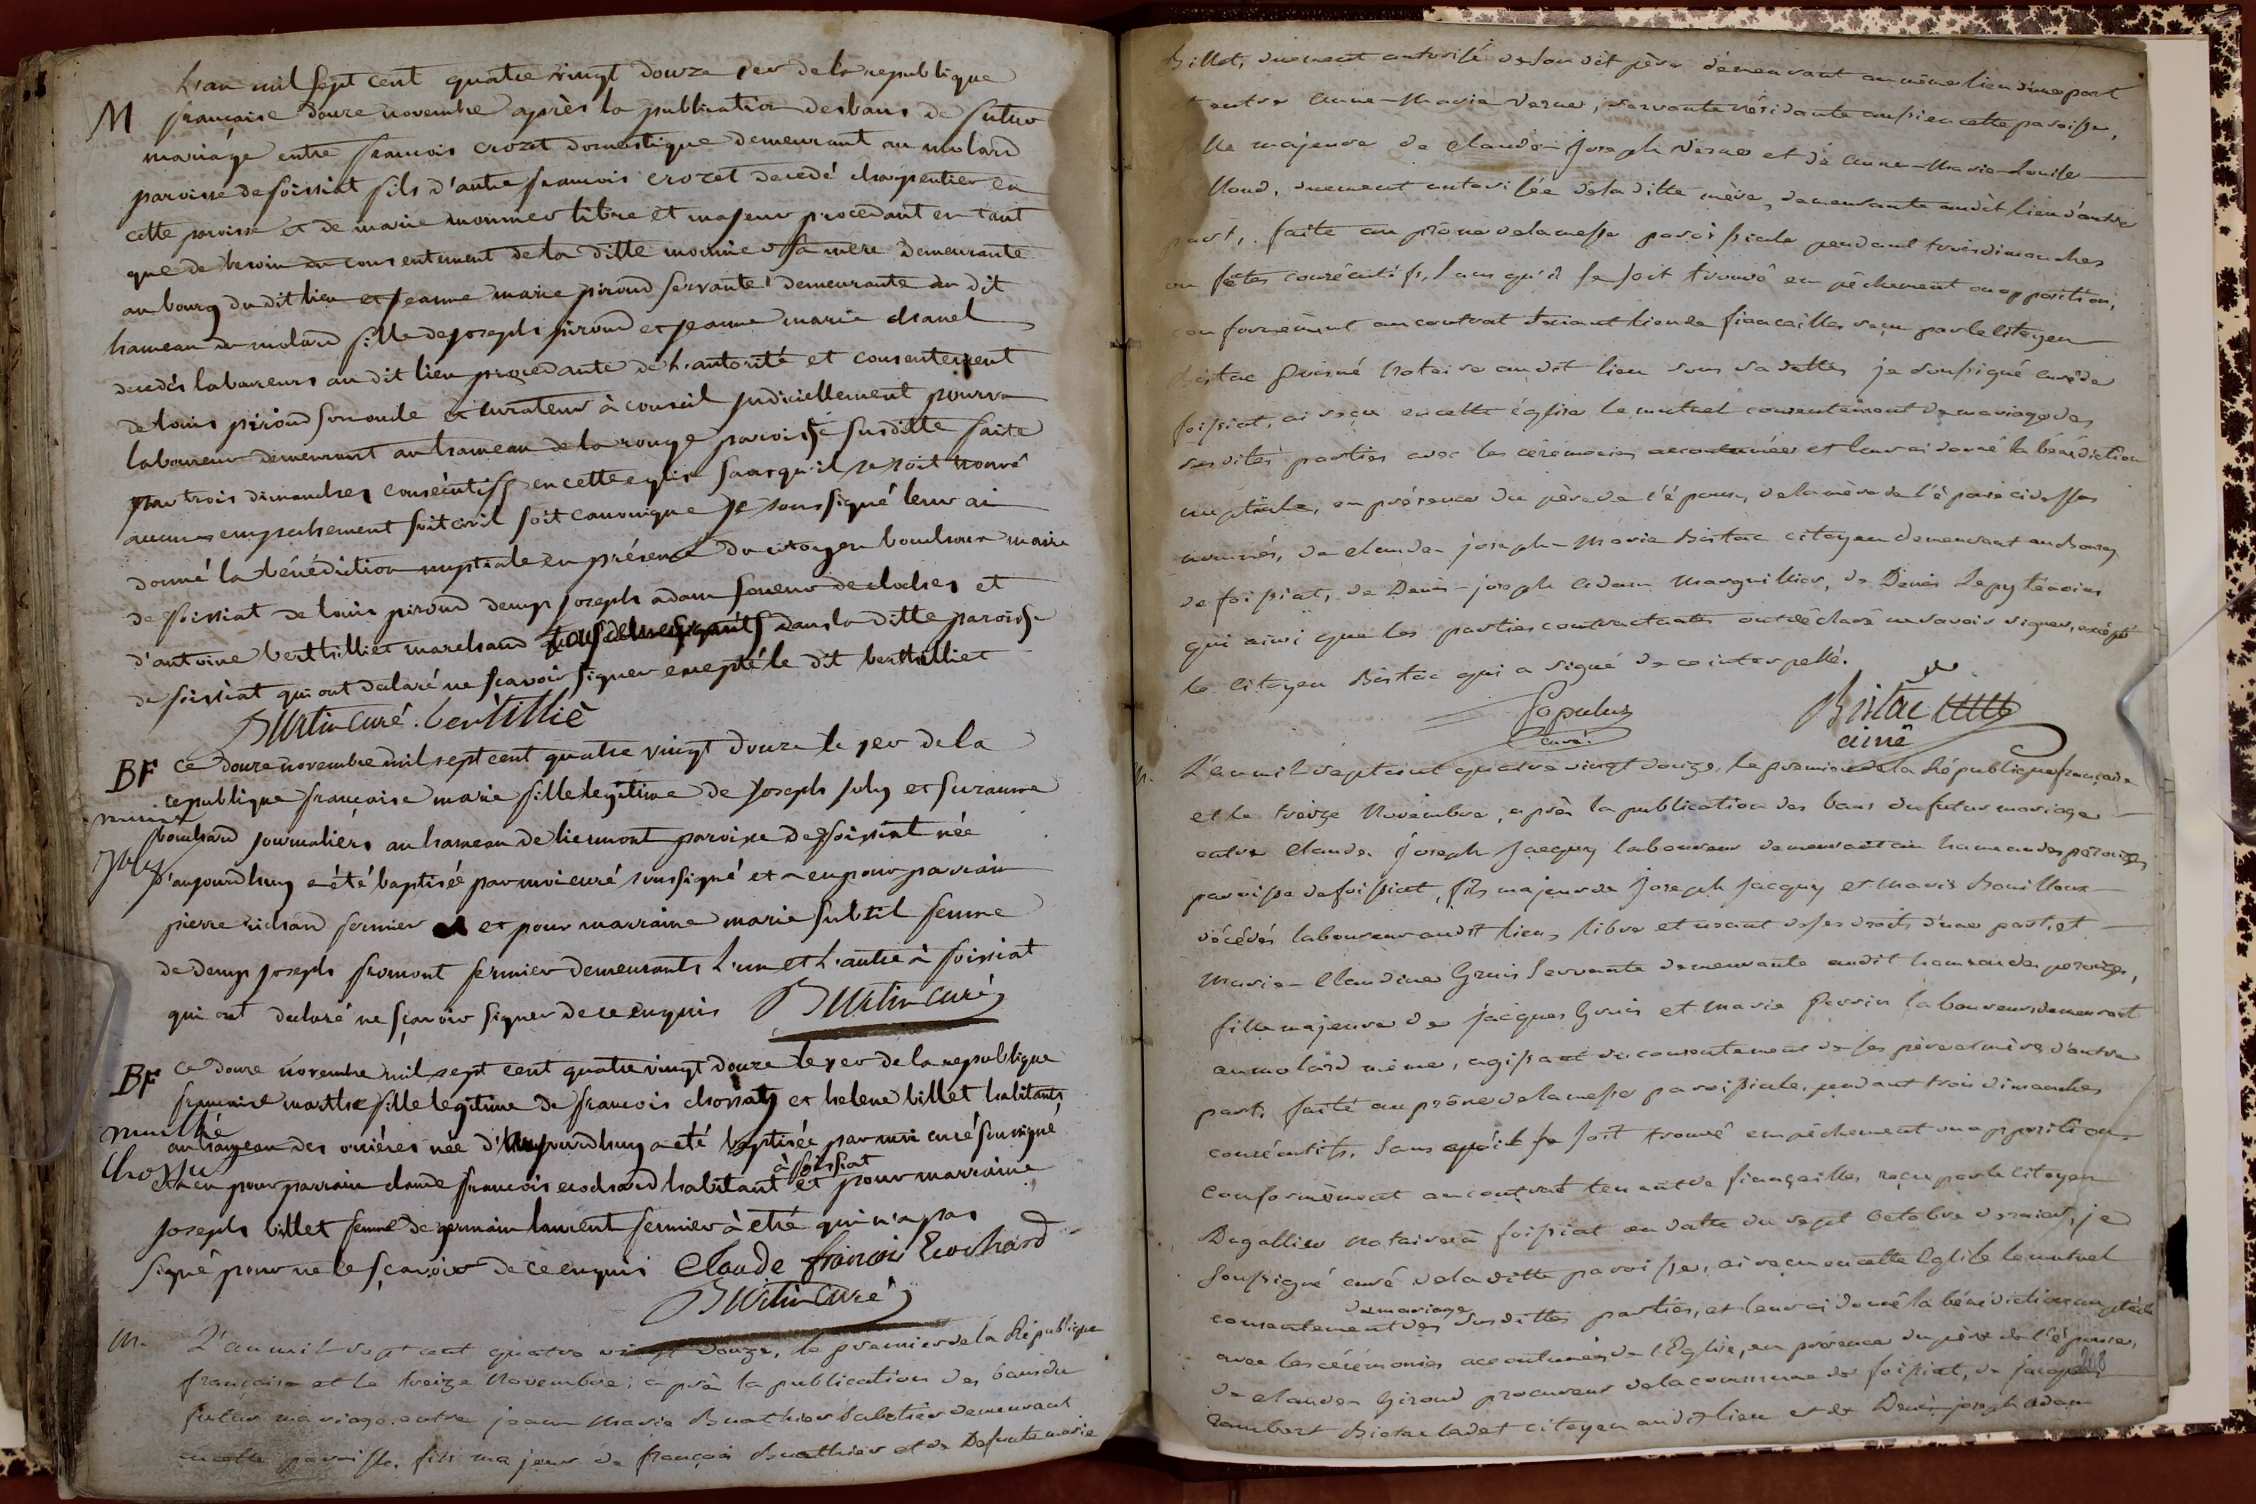 L'an mil sept cent quatre vingt douze 1er de la republique
M françoise douze novembre après la publication des bans de futur
mariage entre françois crozet domestique demeurant au molard
paroisse de foissiat fils d'autre françois crozet decedé charpentier en
cette paroisse et de marie monnier libre et majeur procedant en tant
que de besoin du consentement de la ditte monnier sa mere demeurante
au bourg du dit lieu et jeanne marie piroud servante demeurante au dit
hameau du molard fille de joseph piroud et jeanne marie chanel
decedés laboureurs au dit lieu procedante de l'autorité et consentement
de louis piroud son oncle et curateur à conseil judiciellement pourvu
laboureur demeurant au hameau de la rouge paroisse susditte faite
par trois dimanches consécutifs en cette eglise sans qu'il se soit trouvé
aucun empechement soit civil soit canonique je soussigné leur ai
donné la bénédiction nuptiale en présence du citoyen bouchoux maire
de foissiat de louis piroud demp joseph adam soneur de cloches et
d'antoine berthilliet marchand dans la ditte paroisse
de foissiat qui ont declaré ne scavoir signer excepté le dit berthilliet
Burtin curé. bertillié
BF ce douze novembre mil sept cent quatre vingt douze le 1er de la
republique françoise marie fille legitime de joseph joly et suzanne
marie
bouchard journaliers au hameau de liermont paroisse de foissiat née
joly
d'aujourdhuy a été baptisée par moi curé soussigné et a eu pour parrain
pierre richard fermier et pour marraine marie subtil femme
de demp joseph fromont fermier demeurants l'un et l'autre à foissiat
qui ont declaré ne sçavoir signer de ce enquis Burtin curé
BF ce douze novembre mil sept cent quatre vingt douze le 1er de la republique
françoise marthe fille legitime de francois chossat et helene billet habitants
marthe
au hameau des orières née d'aujourdhuy a été baptisée par moi curé soussigné
chossat
à foissiat
et a eu pour parrain claude françois ecochard habitant et pour marraine
joseph billet femme de germain laurent fermier à etré qui n'a pas
signé pour ne le sçavoir de ce enquis Claude francois Ecochard
Burtin curé
m. L'an mil sept cent quatre vingt douze, le premier de la République
française et le treize Novembre; après la publication des bans du
futur mariage entre jean Marie Buathier Sabotier demeurant
en cette paroisse, fils majeur de françois Buathier et de Defunte marie
Billet, duement autorisé de son dit père demeurant au même lieu d'une part
et entre Anne-Marie Verne, servante résidante aussi en cette paroisse,
fille majeure de Claude-Joseph Verne et de Anne-Marie-Louise
Maud, duement autorisée de la ditte mère, demeurante audit lieu d'autre
part, faite au prône de la messe paroissiale pendant trois dimanches
ou fêtes consécutifs, sans qu'il se soit trouvé empêchement ou opposition,
conformément au contrat tenant lieu de fiancailles reçu par le citoyen
Bistac Puisné Notaire audit lieu sous sa datte, je soussigné curé de
foissiat, ai reçu en cette église le mutuel consentement de mariage des
susdites parties avec les cérémonies accoutumées et leur ai donné la bénédiction
nuptiale, en présence du père de l'époux, de la mère de l'épouse ci dessus
nommés, de claude-joseph-Marie Bistac citoyen demeurant au bourg
de foissiat, de Denis-joseph Adam Marguillier, de Denis Lepy témoins
qui ainsi que les parties contractantes ont déclaré ne savoir signer, excepté
le citoyen Bistac qui a signé de ce interpellé.
Populus Bistac
curé. ainé
m. L'an mil sept cent quatre vingt douze, le premier de la République française
et le treize Novembre, après la publication des bans du futur mariage
entre Claude Joseph Jacquy laboureur demeurant au hameau des pérouzes
paroisse de foissiat, fils majeur de Joseph Jacquy et Marie Bouilloux
décédés laboureurs audit lieu, libre et usant de ses droits d'une part, et
Marie-Claudine Gruis Servante demeurante audit hameau des perouzes,
fille majeure de jacques Gruis et Marie Perrin laboureurs demeurant
au molard même, agissant du consentement de ses père et mère, d'autre
part, faite au prône de la messe paroissiale, pendant trois dimanches
consécutifs, Sans qu'il se soit trouvé empêchement ou opposition
conformément au contrat tenant de fiançailles reçu par le Citoyen
Dagallier Notaire à foissiat en datte du sept Octobre dernier, je
Soussigné curé de la ditte paroisse, ai reçu en cette Eglise le mutuel
de mariage
consentement des susdittes parties, et leur ai donné la bénédiction nuptiale
avec les cérémonies accoutumées de l'Eglise, en présence du père de l'épouse,
de claude Giroud procureur de la commune de foissiat, de jacques
rambert Bistac cadet citoyen audit lieu et de Denis-joseph Adam